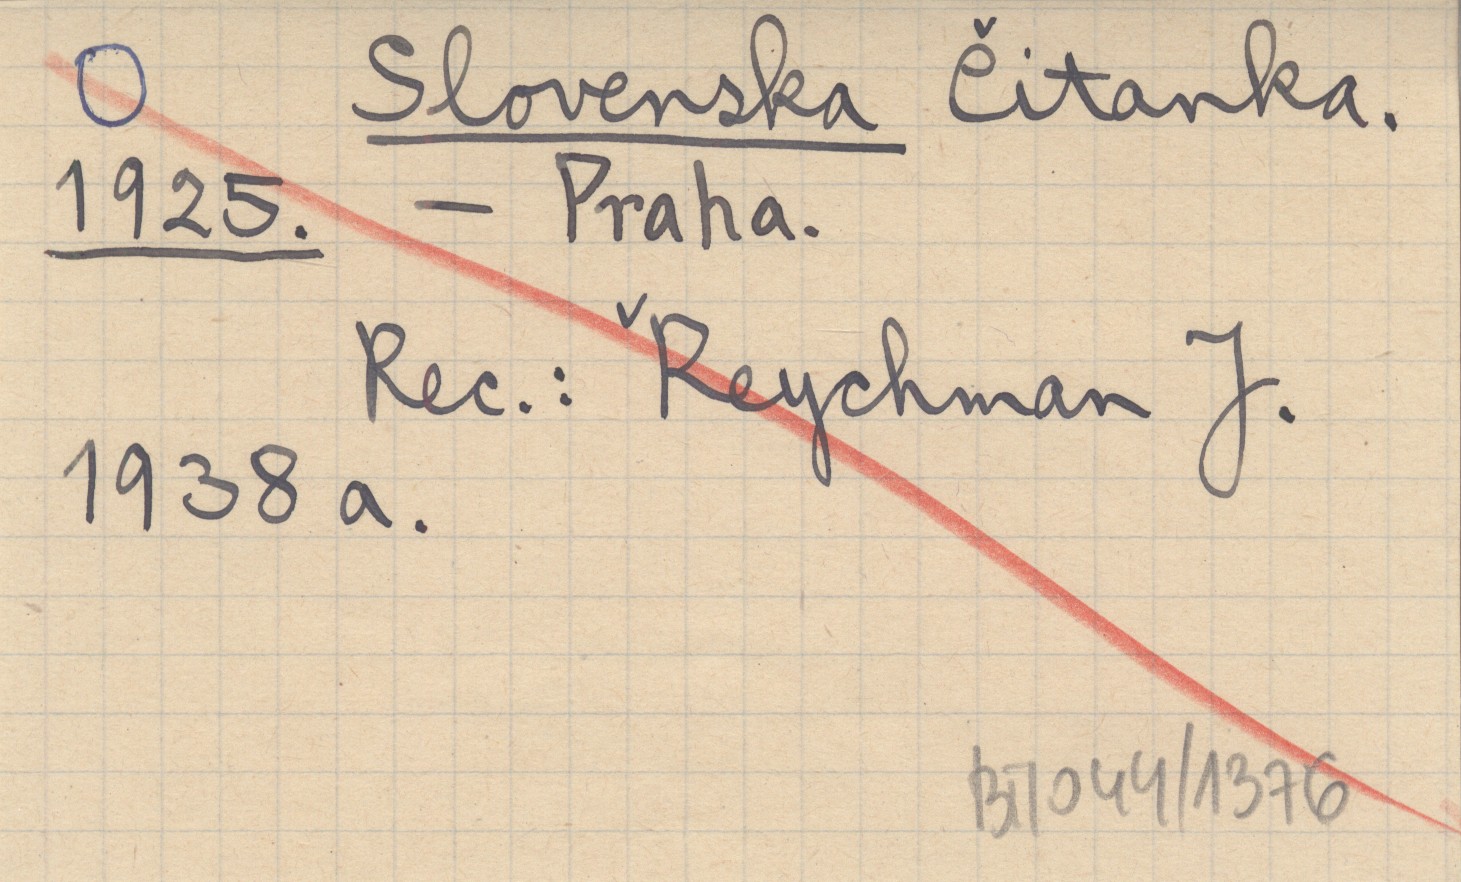 O Slovenska Čitanka.
1925. — Praha.
Rec.: ˇReychman J.
1938 a.
BTI044/1376